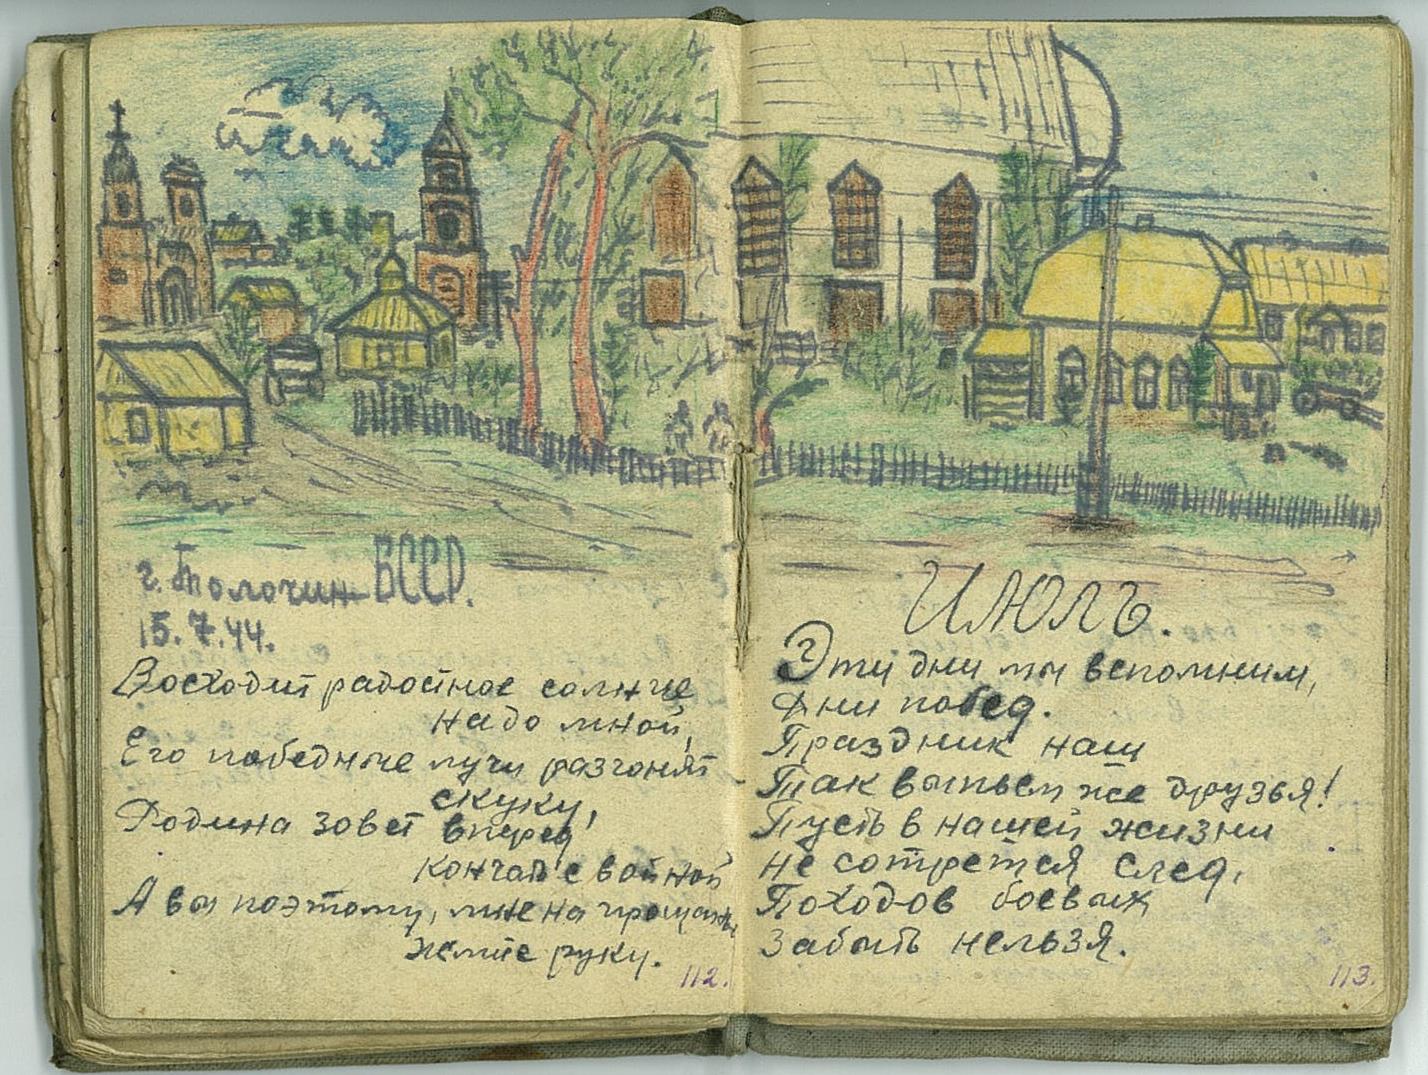 г. Толочин БССР.
15.7.44.
Восходит радостное солнце
надо мной,
Его победные лучи разгонят
скуку,
Родина зовет вперед
кончать с войной
А вы поэтому, мне на прощанье
жмите руку.
112.
ИЮЛЬ.
Эти дни мы вспомним,
Дни побед.
Праздник наш
Так выпьем же друзья!
Пусть в нашей жизни
не сотрется след,
Походов боевых
Забыть нельзя.
113.